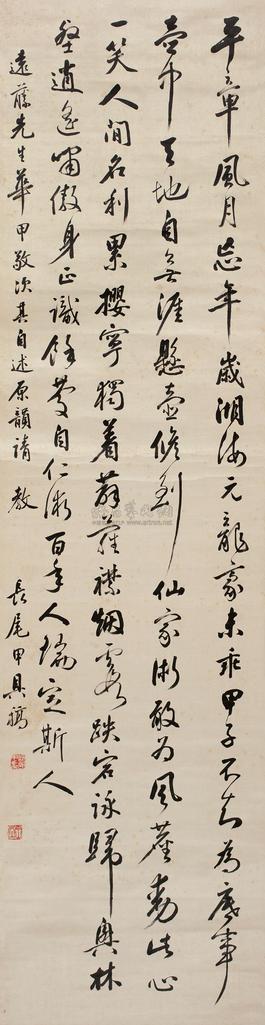 平章風月忘年歲湖海元龍豪未乖甲子不知為底事
壺中天地自無涯懸壺修到仙家術敢為風塵動此心
一笑人間名利累攖寧獨着薜蘿襟烟霞跌宕詠歸與林
壑逍遙嘯傲身正識餘慶自仁術百年人瑞定斯人
遠藤先生華甲敬次其自述原韻請 教 長尾甲具稿